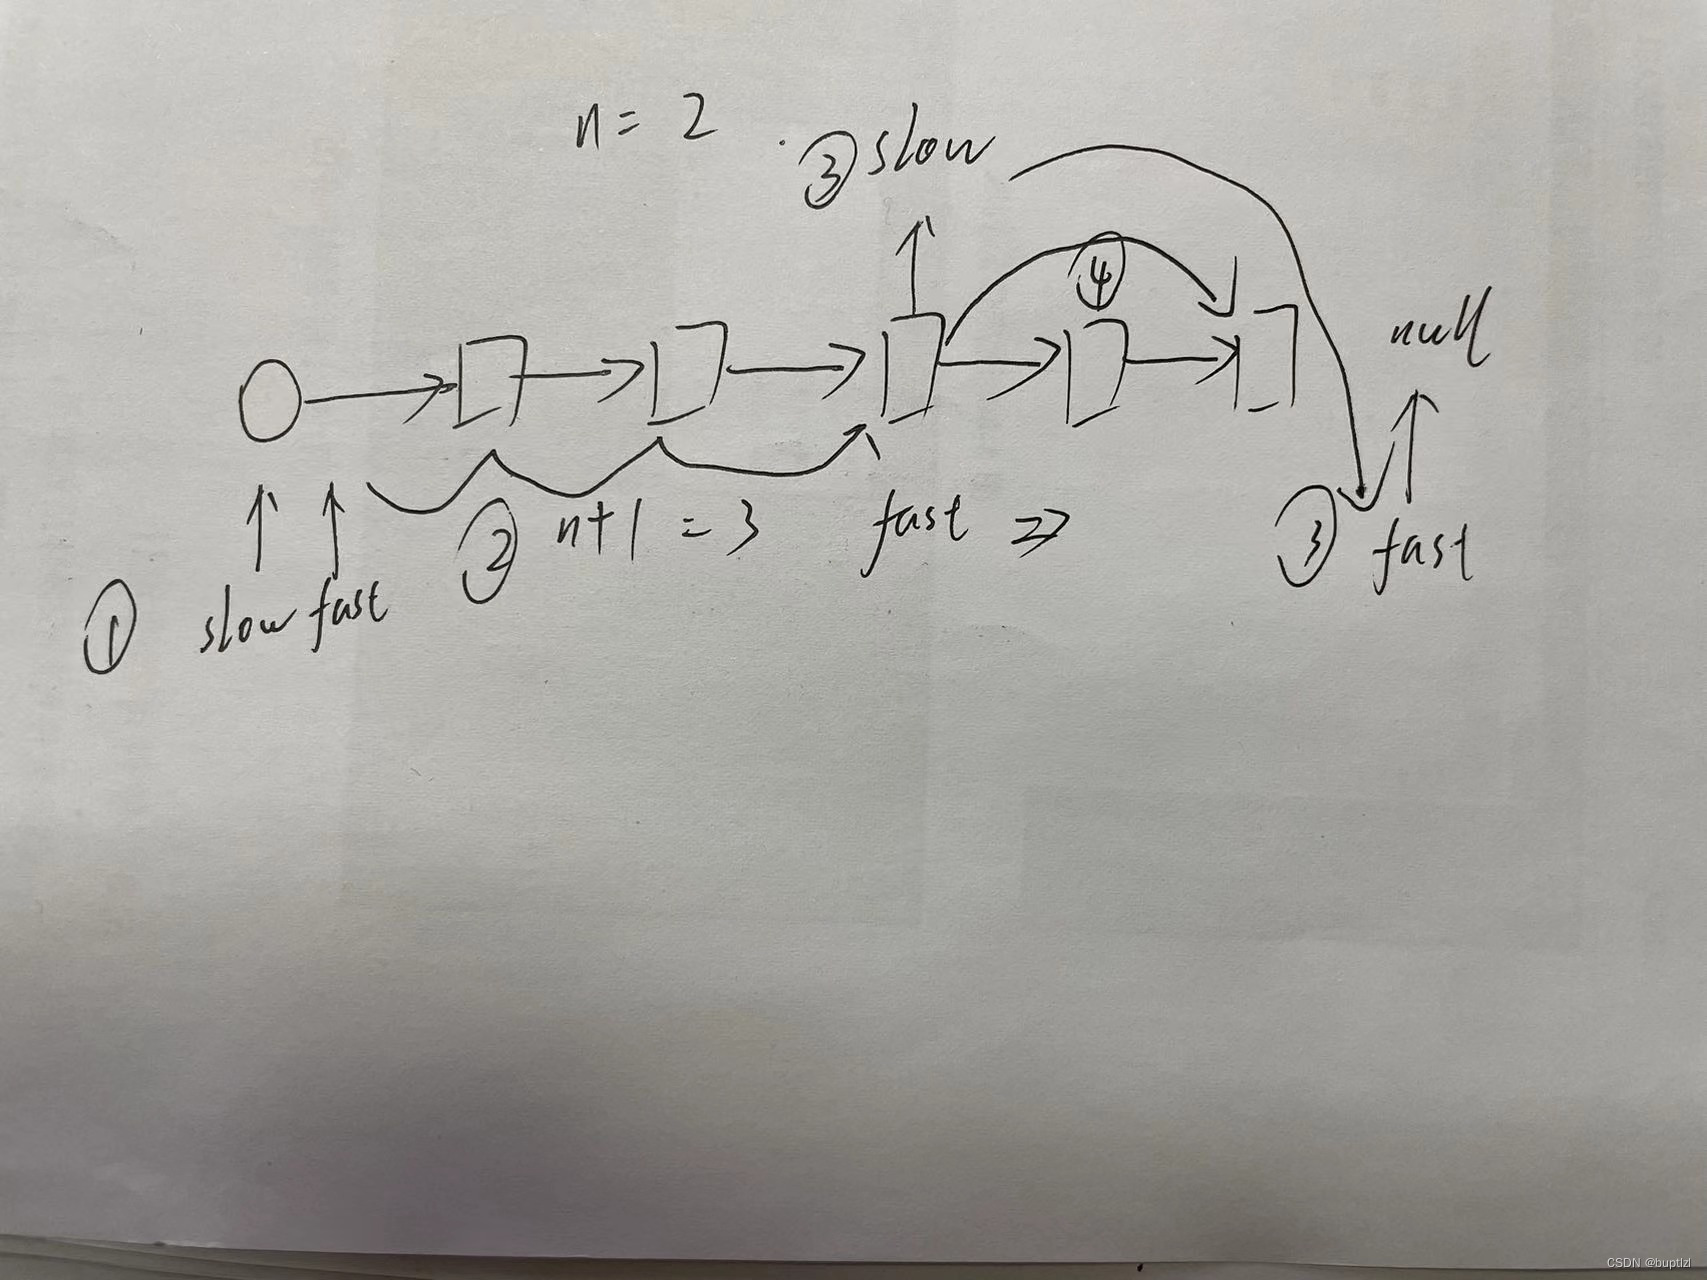 n = 2
③ slow
④
null
② n+1 = 3 fast ⇒
③ fast
① slow fast
CSDN @buptlzl